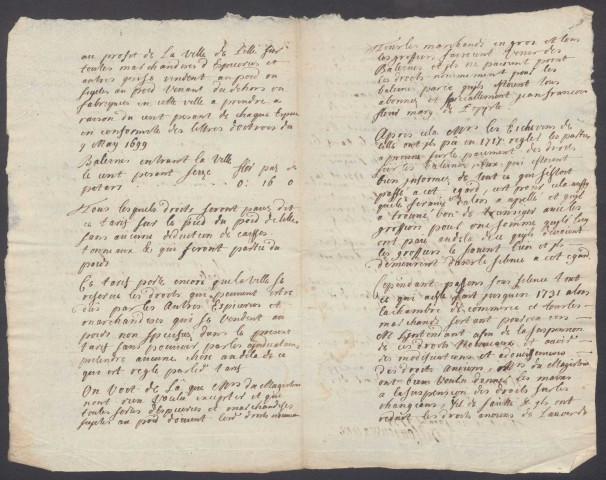 au profit de La Ville de Lille sur
toutes marchandises d'Epiceries et
autres qui se vendent au poid ou
sujettes au poid venant du dehors ou
fabriquees en cette ville a prendre a
raison du cent pesant de chaque espece
en conformité des lettres d'octrois du
7 May 1699
Balernes entrant la Ville
le cent pesant seize
patars 0: 16 0
Tous lesquels droits seront payez
ce tarif sur le pied du poid de Lille
sans aucune deduction de caisses
tonneaux & qui feront partie du
poids
Ce tarif porte encore que la ville se
reserve les droits que peuvent estre
dus par les Autres Epiceries et
marchandises qui se vendent au
poid non specifiés dans le present
tarif sans pouvoir par les
pretendre aucune chose au dela de ce
que est reglé par le tarif
On Voit de La que Mrs du Magistrat
n'ont rien Voulu excepter et que
toutes sortes d'epiceries et marchandises
sujettes au poid doivent ces droits
Tous les marchands en gros et tous
les grossiers faisant venir des
Balernes et ils ne payent point
les droits nommement pour les
balernes parce qu'ils estoient tous
abonnez et specialement jean francois
Apres cela Mrs les Echevins de
Lille ont ils pu en 1717 regler les parties
a prendre sur le payement des droits
sur les balernes eux qui estoient
bien informez de tout ce qui s'estoit
passé a cet egard, c'est pour cela aussy
a trouvé bon de transiger avec les
grossiers pour une somme qu'ils luy
ont payé au dela de ce qu'ils devoient
les grossiers le savent bien et ils
demeurent dans le silence a cet egard
Cependant passons sous silence tout
ce qui a esté fait jusqu'en 1731 alors
la chambre de commerce et par les
marchands sont ont
M L'Intendant afin de la suspension
de ces droits Nouveaux et aussi
des moderations et adoucissemens
des droits anciens, Mrs du Magistrat
ont bien voulu donner les mains
a la suspension des droits sur les
changeans, fil de & ils ont
reduit les droits anciens de